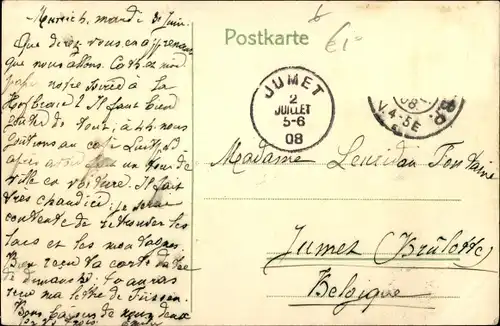 Munich, mardi 30 Juin.
Que direz-vous en apprenant
que nous allons
notre soirée à la
Hofbraü ? Il faut bien
goûter de tout; à 4 h. nous
goûtions au café Luitpold
après avoir fait un tour de
ville en voiture. Il fait
très chaud ici; je serai
contente de retrouver les
lacs et les montagnes.
Bien reçu ta carte datée
de dimanche. Tu auras
reçu ma lettre de Füssen.
Bons baisers de nous deux
Postkarte
JUMET
2
JUILLET
5-6
08
08
V.4-5E
Madame Leusidan Fontaine
Jumet (Brûlotte)
Belgique